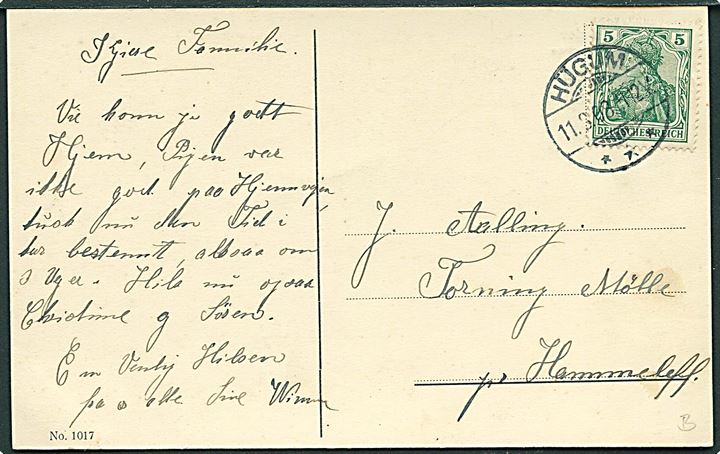 Kjære Familie.
Vie kom jo godt
Hjem, Pigen var
ikke god paa Hjemvejen,
husk nu den Tid i
har bestemt, altsaa om
3 Uger. Hils nu ogsaa
Christine og Sören.
En Venlig Hilsen
paa alle
No. 1017
HÜGUM
11.9.
5 5
DEUTSCHES REICH
J. Aalling.
Torning Mölle
pr Hammeleff.
B